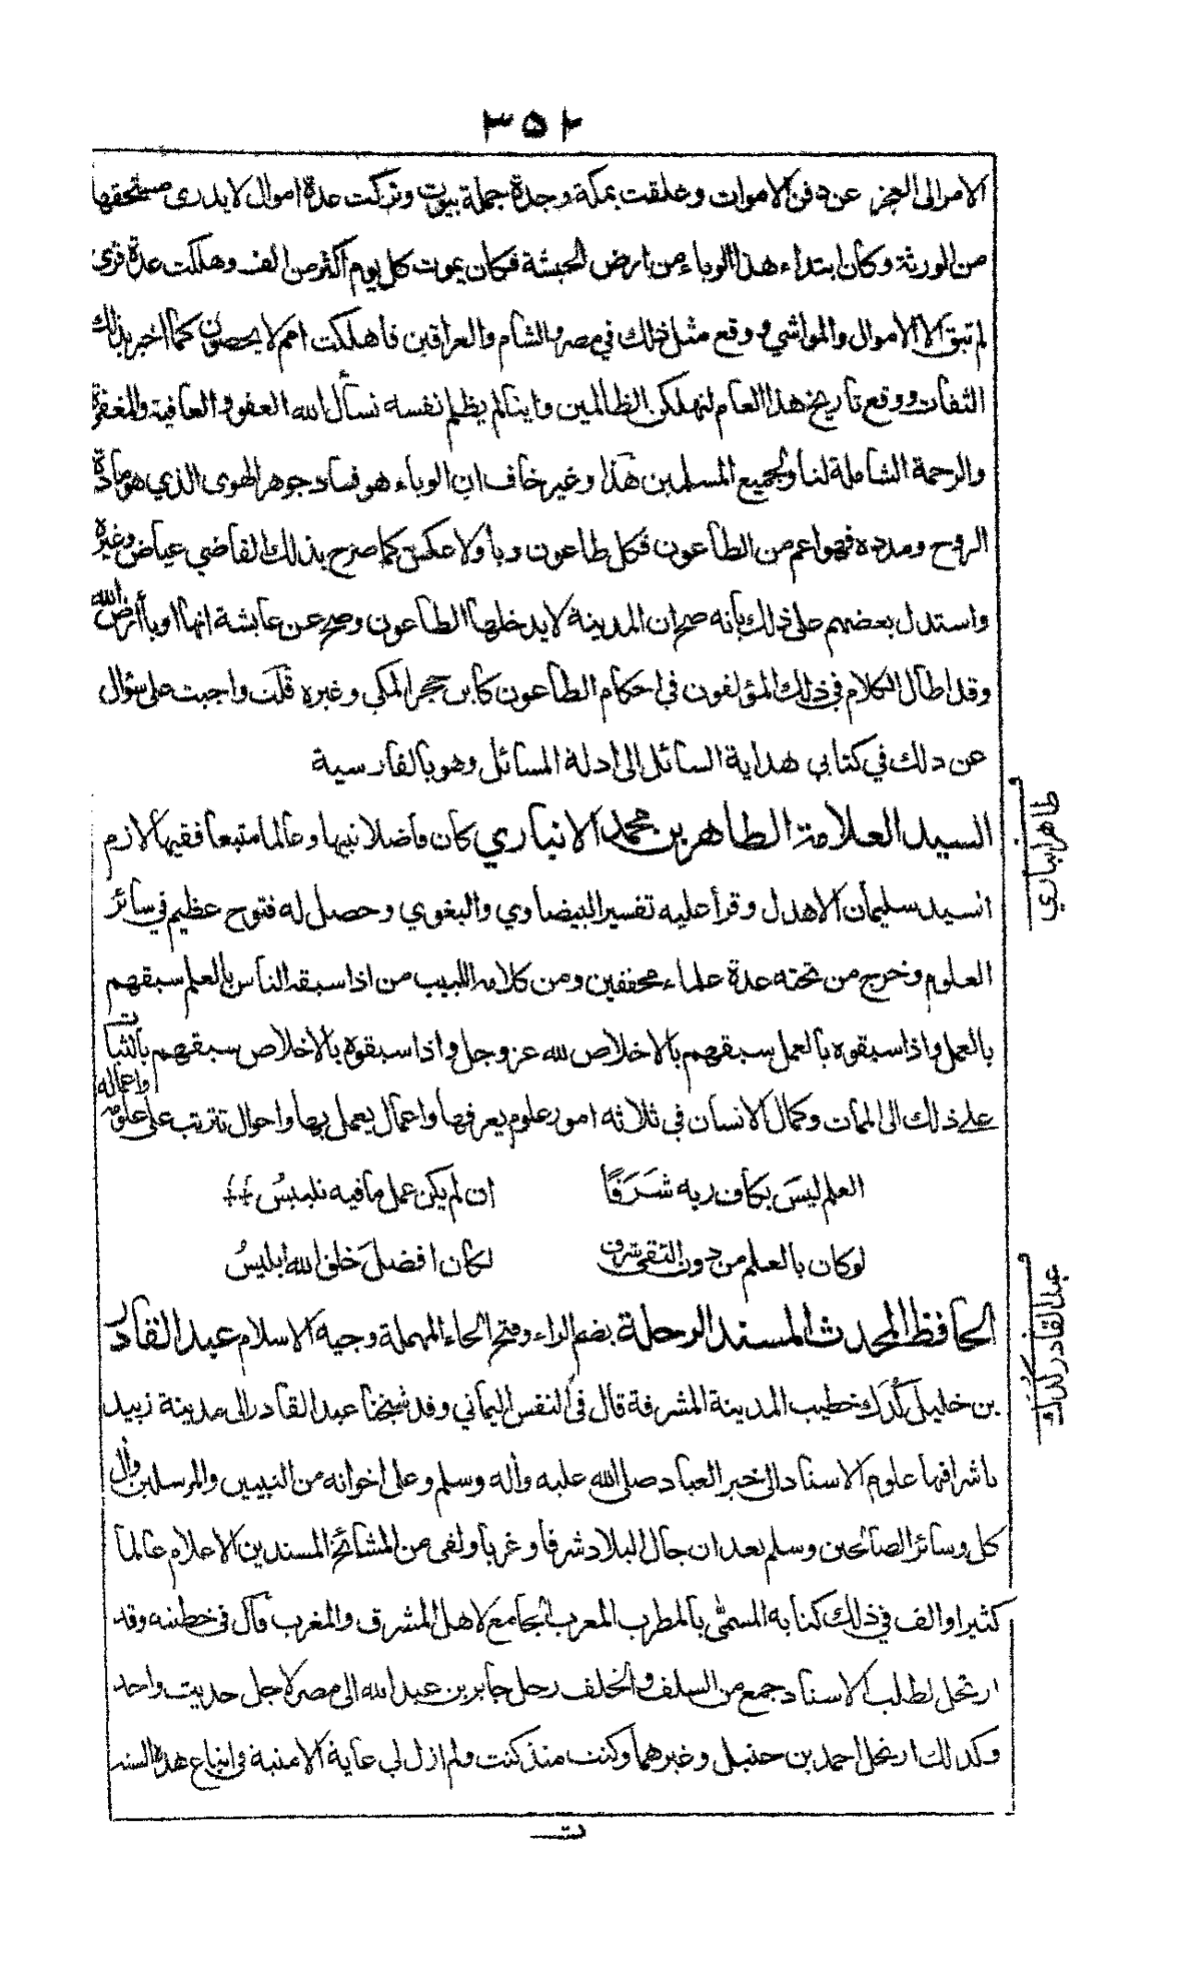 ٣٥٢
الامر الى العجز عن دفن الاموات وغلقت بمكة وجدة جملة بيوت وتركت عدة اموال لا يدرى مستحقها
من الورثة وكان ابتداء هذا الوباء من ارض الحبشة فكان يموت كل يوم اكثر من الف وهلكت عدة قرى
لم تبق الا الاموال والمواشي ووقع مثل ذلك في مصر والشام والعراقين فاهلكت امم لا يحصون كما اخبر بذلك
الثقات ووقع تاريخ هذا العام لنهلكن الظالمين واينا لم يظلم نفسه نسأل الله العفو والعافية والمغفرة
والرحمة الشاملة لنا ولجميع المسلمين هذا وغير خاف ان الوباء هو فساد جوهر الهوى الذي هو مادة
الروح ومدده فهو اعم من الطاعون فكل طاعون وبأ ولا عكس كما صرح بذلك القاضي عياض وغيره
واستدل بعضهم على ذلك بأنه صح ان المدينة لا يدخلها الطاعون وصح عن عايشة انها اوبأ ارض الله
وقد اطال الكلام في ذلك المؤلفون في احكام الطاعون كابن حجر المكي وغيره قلت واجبت على سؤال
عن ذلك في كتابي هداية السائل الى ادلة المسائل وهو بالفارسية
السيد العلامة الطاهر بن محمد الانباري كان فاضلا نبيها وعالما متبعا فقيها لازم
السيد سليمان الاهدل وقرأ عليه تفسير البيضاوي والبغوي وحصل له فتوح عظيم في سائر
العلوم وخرج من تحته عدة علماء محققين ومن كلامه اللبيب من اذا سبقه الناس بالعلم سبقهم
بالعمل واذا سبقوه بالعمل سبقهم بالاخلاص لله عز وجل واذا سبقوه بالاخلاص سبقهم بالثبات
على ذلك الى الممات وكمال الانسان في ثلاثه امور علوم يعرفها واعمال يعمل بها واحوال تترتب على علومه واعماله
العلم ليسَ بكاف ربه شَرَفًا ان لم يكن عمل ما فيه تلبيسُ
لو كان بالعلم من دون التقى شرف لكان افضلَ خلق الله ابليسُ
الحافظ المحدث المسند الرحلة بضم الراء وفتح الحاء المهملة وجيه الاسلام عبد القادر
بن خليل كُدَك خطيب المدينة المشرفة قال في النفس اليماني وفد شيخنا عبد القادر الى مدينة زبيد
ناشرا فيها علوم الاسناد الى خير العباد صلى الله عليه وآله وسلم وعلى اخوانه من النبيين والمرسلين وآل
كل وسائر الصالحين وسلم بعد ان جال البلاد شرقا وغربا ولقى من المشائخ المسندين الاعلام عالما
كثيرا والف في ذلك كتابه المسمّى بالمطرب المعرب الجامع لاهل المشرق والمغرب قال في خطبته وقد
ارتحل لطلب الاسناد جمع من السلف والخلف رحل جابر بن عبد الله الى مصر لاجل حديث واحد
وكذلك ارتحل احمد بن حنبل وغيرهما وكنت منذ كنت ولم ازل لي غاية الامنية في اتباع هذه السنة
طاهر انباري
عبد القادر كدك